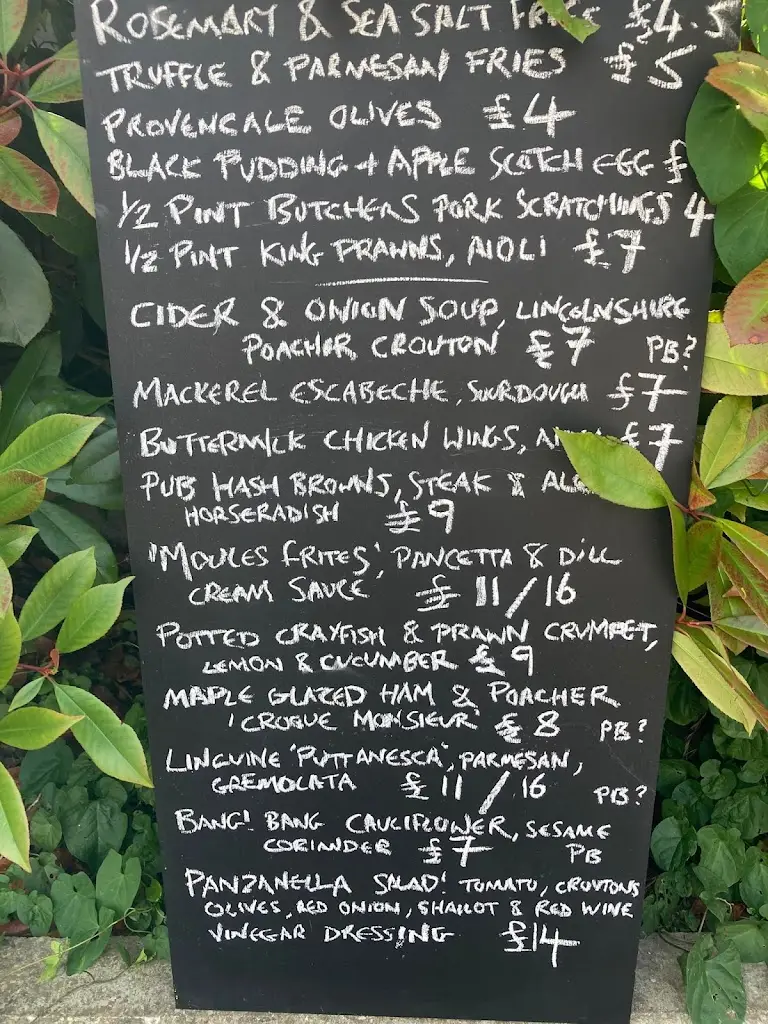 ROSEMARY & SEA SALT FRIES £4.5
TRUFFLE & PARMESAN FRIES £5
PROVENCALE OLIVES £4
BLACK PUDDING + APPLE SCOTCH EGG £
1/2 PINT BUTCHERS PORK SCRATCHINGS 4
1/2 PINT KING PRAWNS, AIOLI £7
CIDER & ONION SOUP, LINCOLNSHIRE
POACHER CROUTON £7 PB?
MACKEREL ESCABECHE, SOURDOUGH £7
BUTTERMILK CHICKEN WINGS, £7
PUB HASH BROWNS, STEAK & ALE
HORSERADISH £9
'MOULES FRITES', PANCETTA & DILL
CREAM SAUCE £11/16
POTTED CRAYFISH & PRAWN CRUMPET,
LEMON & CUCUMBER £9
MAPLE GLAZED HAM & POACHER
'CROQUE MONSIEUR' £8 PB?
LINGUINE 'PUTTANESCA', PARMESAN,
GREMOLATA £11/16 PB?
BANG! BANG CAULIFLOWER, SESAME
CORIANDER £7 PB
PANZANELLA SALAD! TOMATO, CROUTONS
OLIVES, RED ONION, SHALLOT & RED WINE
VINEGAR DRESSING £14